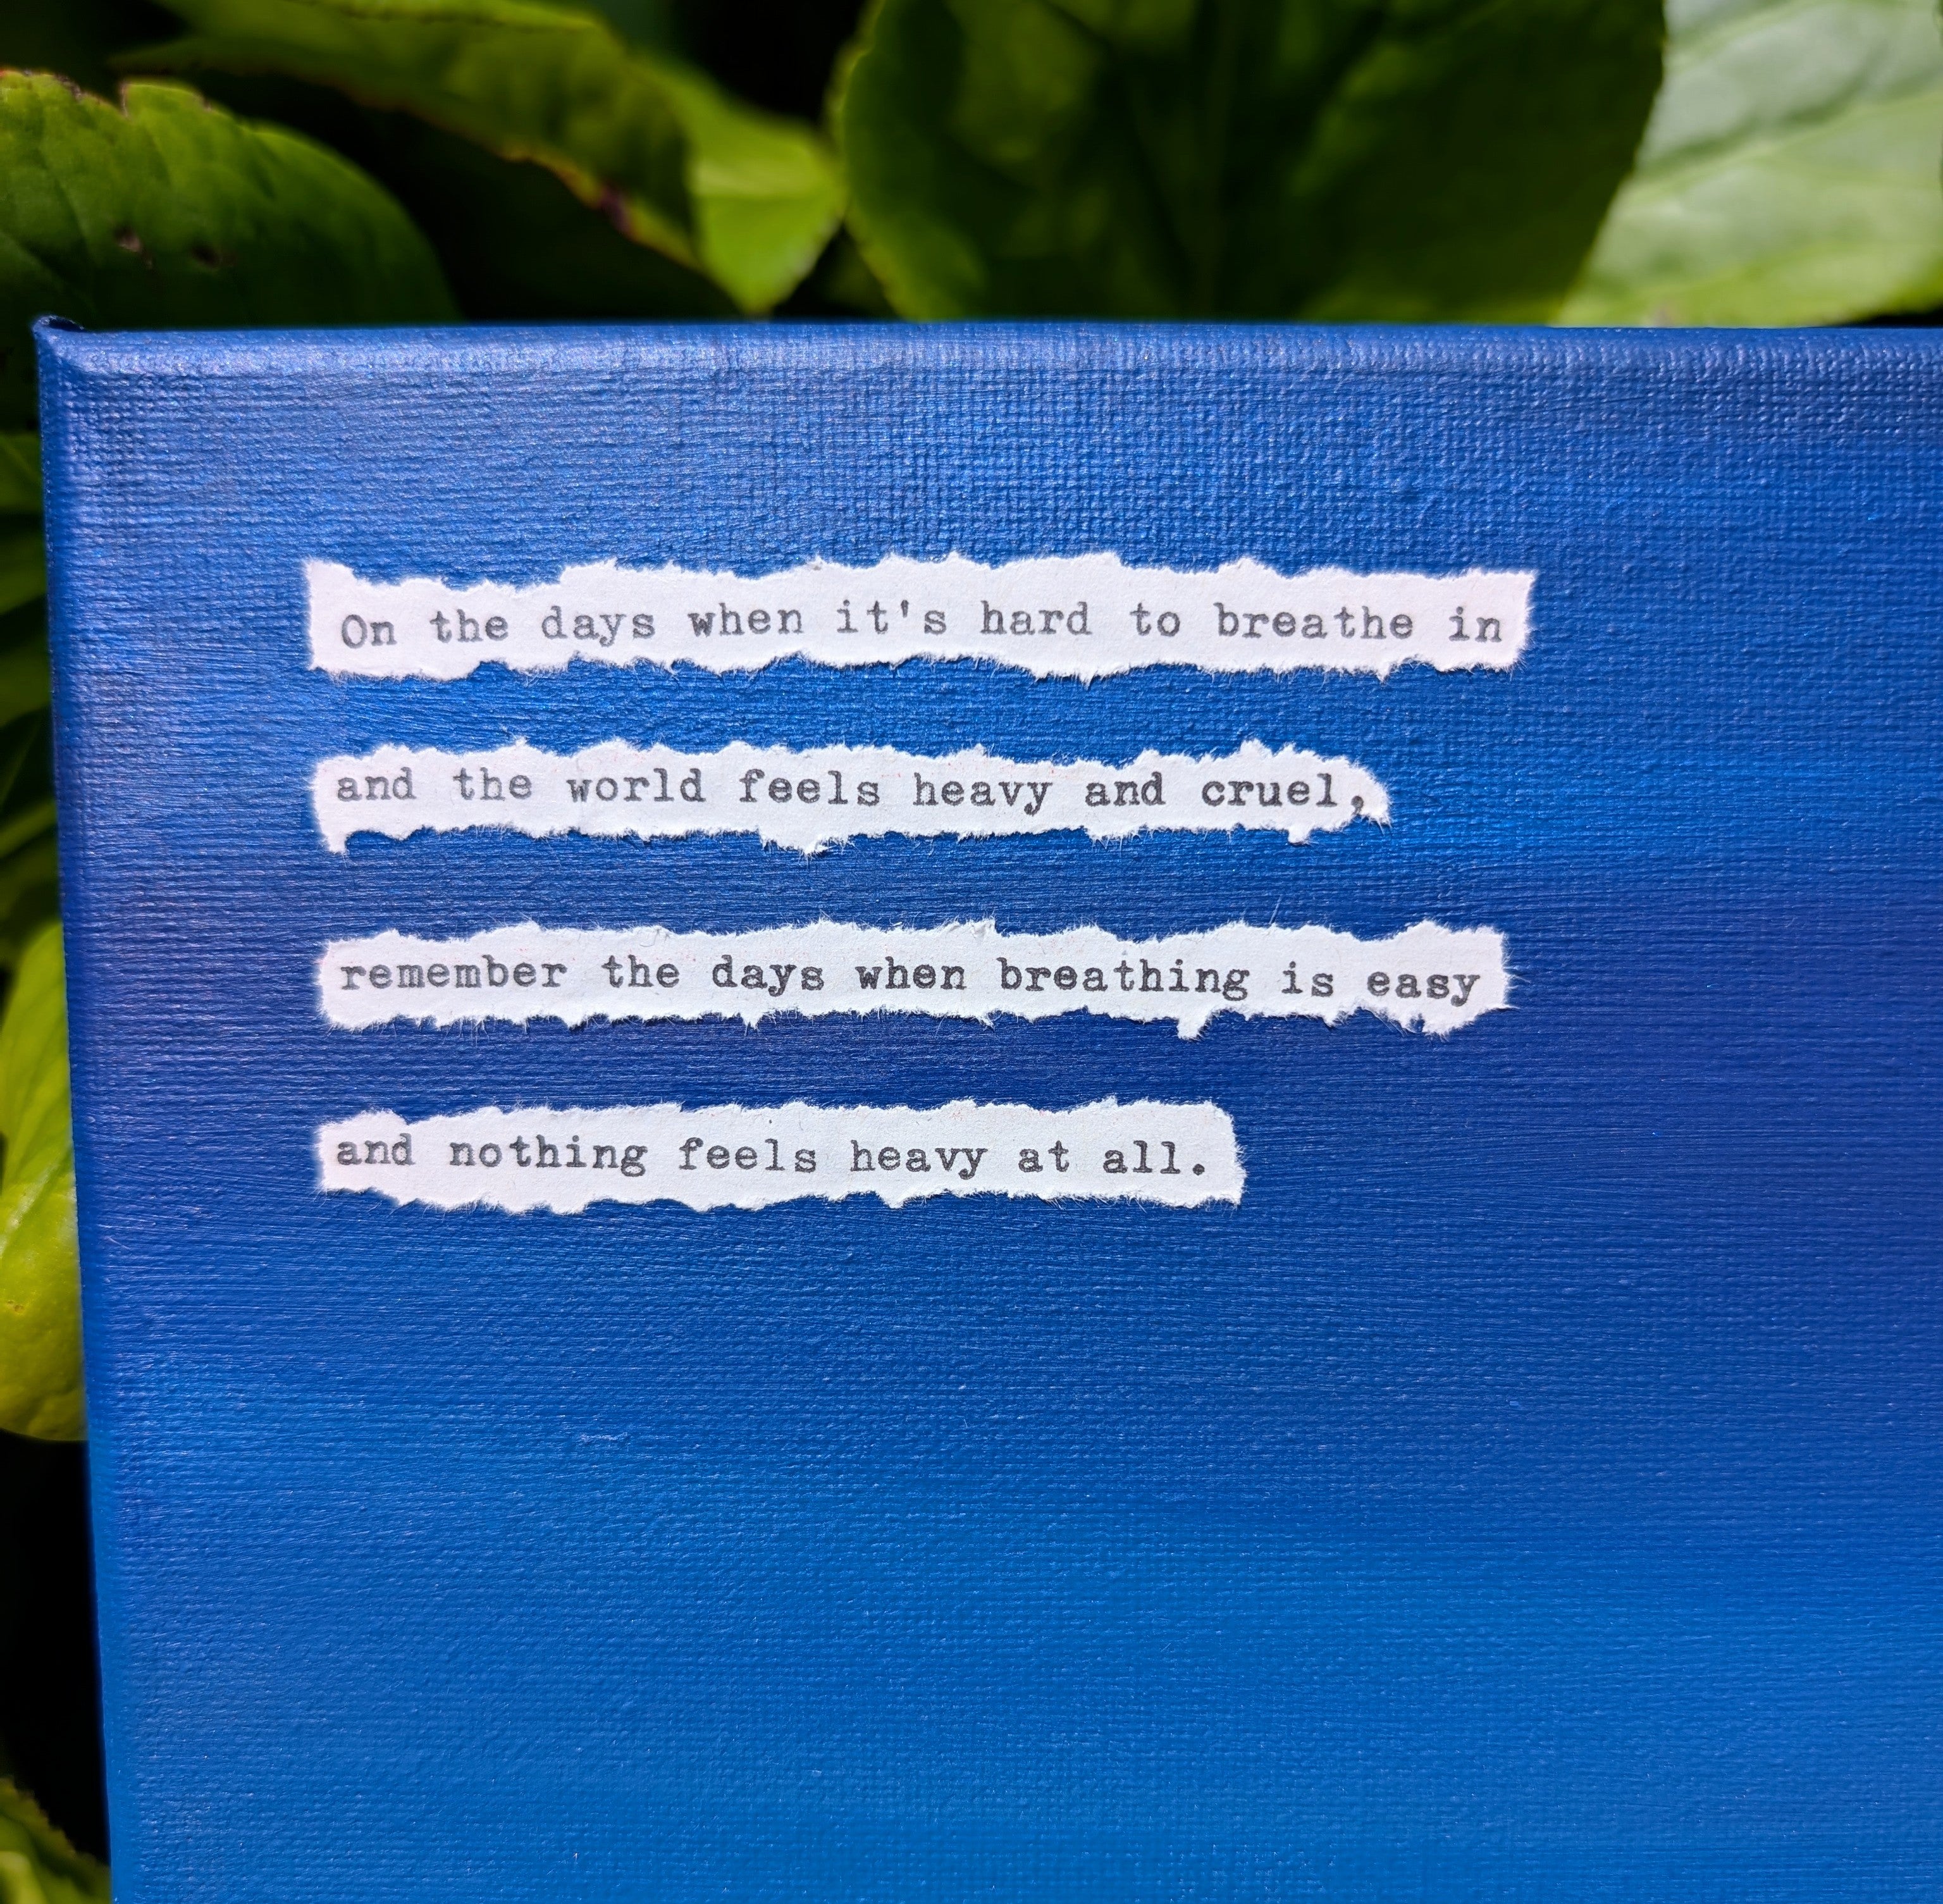 On the days when it's hard to breathe in
and the world feels heavy and cruel,
remember the days when breathing is easy
and nothing feels heavy at all.